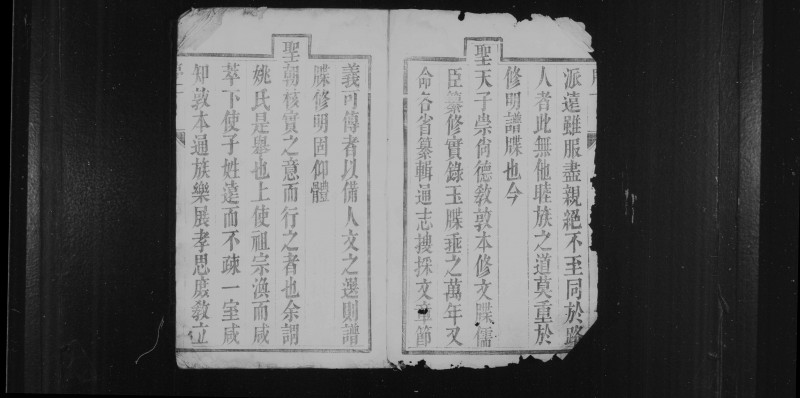 派遠雖服盡親絕不至同於路
人者此無他睦族之道莫重於
修明譜牒也今
聖天子崇尙德敎敦本修文牒儒
臣纂修實錄玉牒垂之萬年又
命各省纂輯通志搜採文章節
義可傳者以備人文之選則譜
牒修明固仰體
聖朝核實之意而行之者也余謂
姚氏是舉也上使祖宗渙而咸
萃下使子姓遠而不疎一室咸
知敦本通族樂展孝思庶敎立